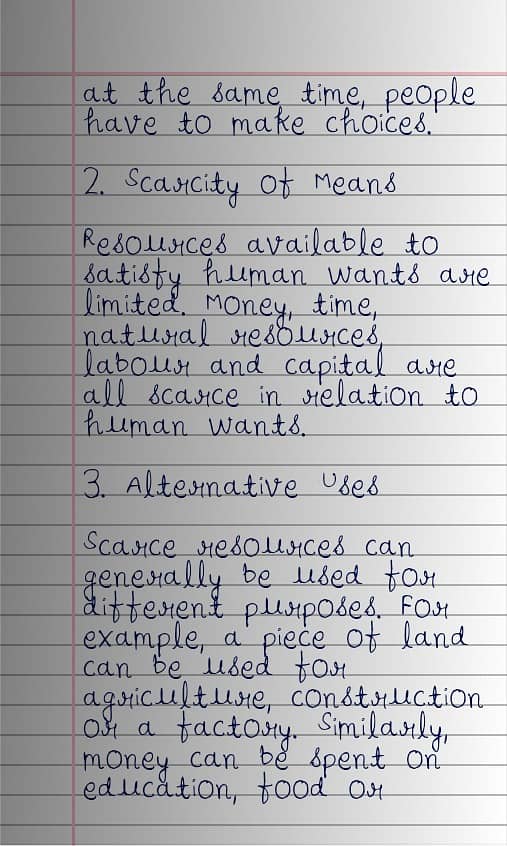 at the same time, people
have to make choices.
2. Scarcity of Means
Resources available to
satisfy human wants are
limited. Money, time,
natural resources,
labour and capital are
all scarce in relation to
human wants.
3. Alternative Uses
Scarce resources can
generally be used for
different purposes. For
example, a piece of land
can be used for
agriculture, construction
or a factory. Similarly,
money can be spent on
education, food or